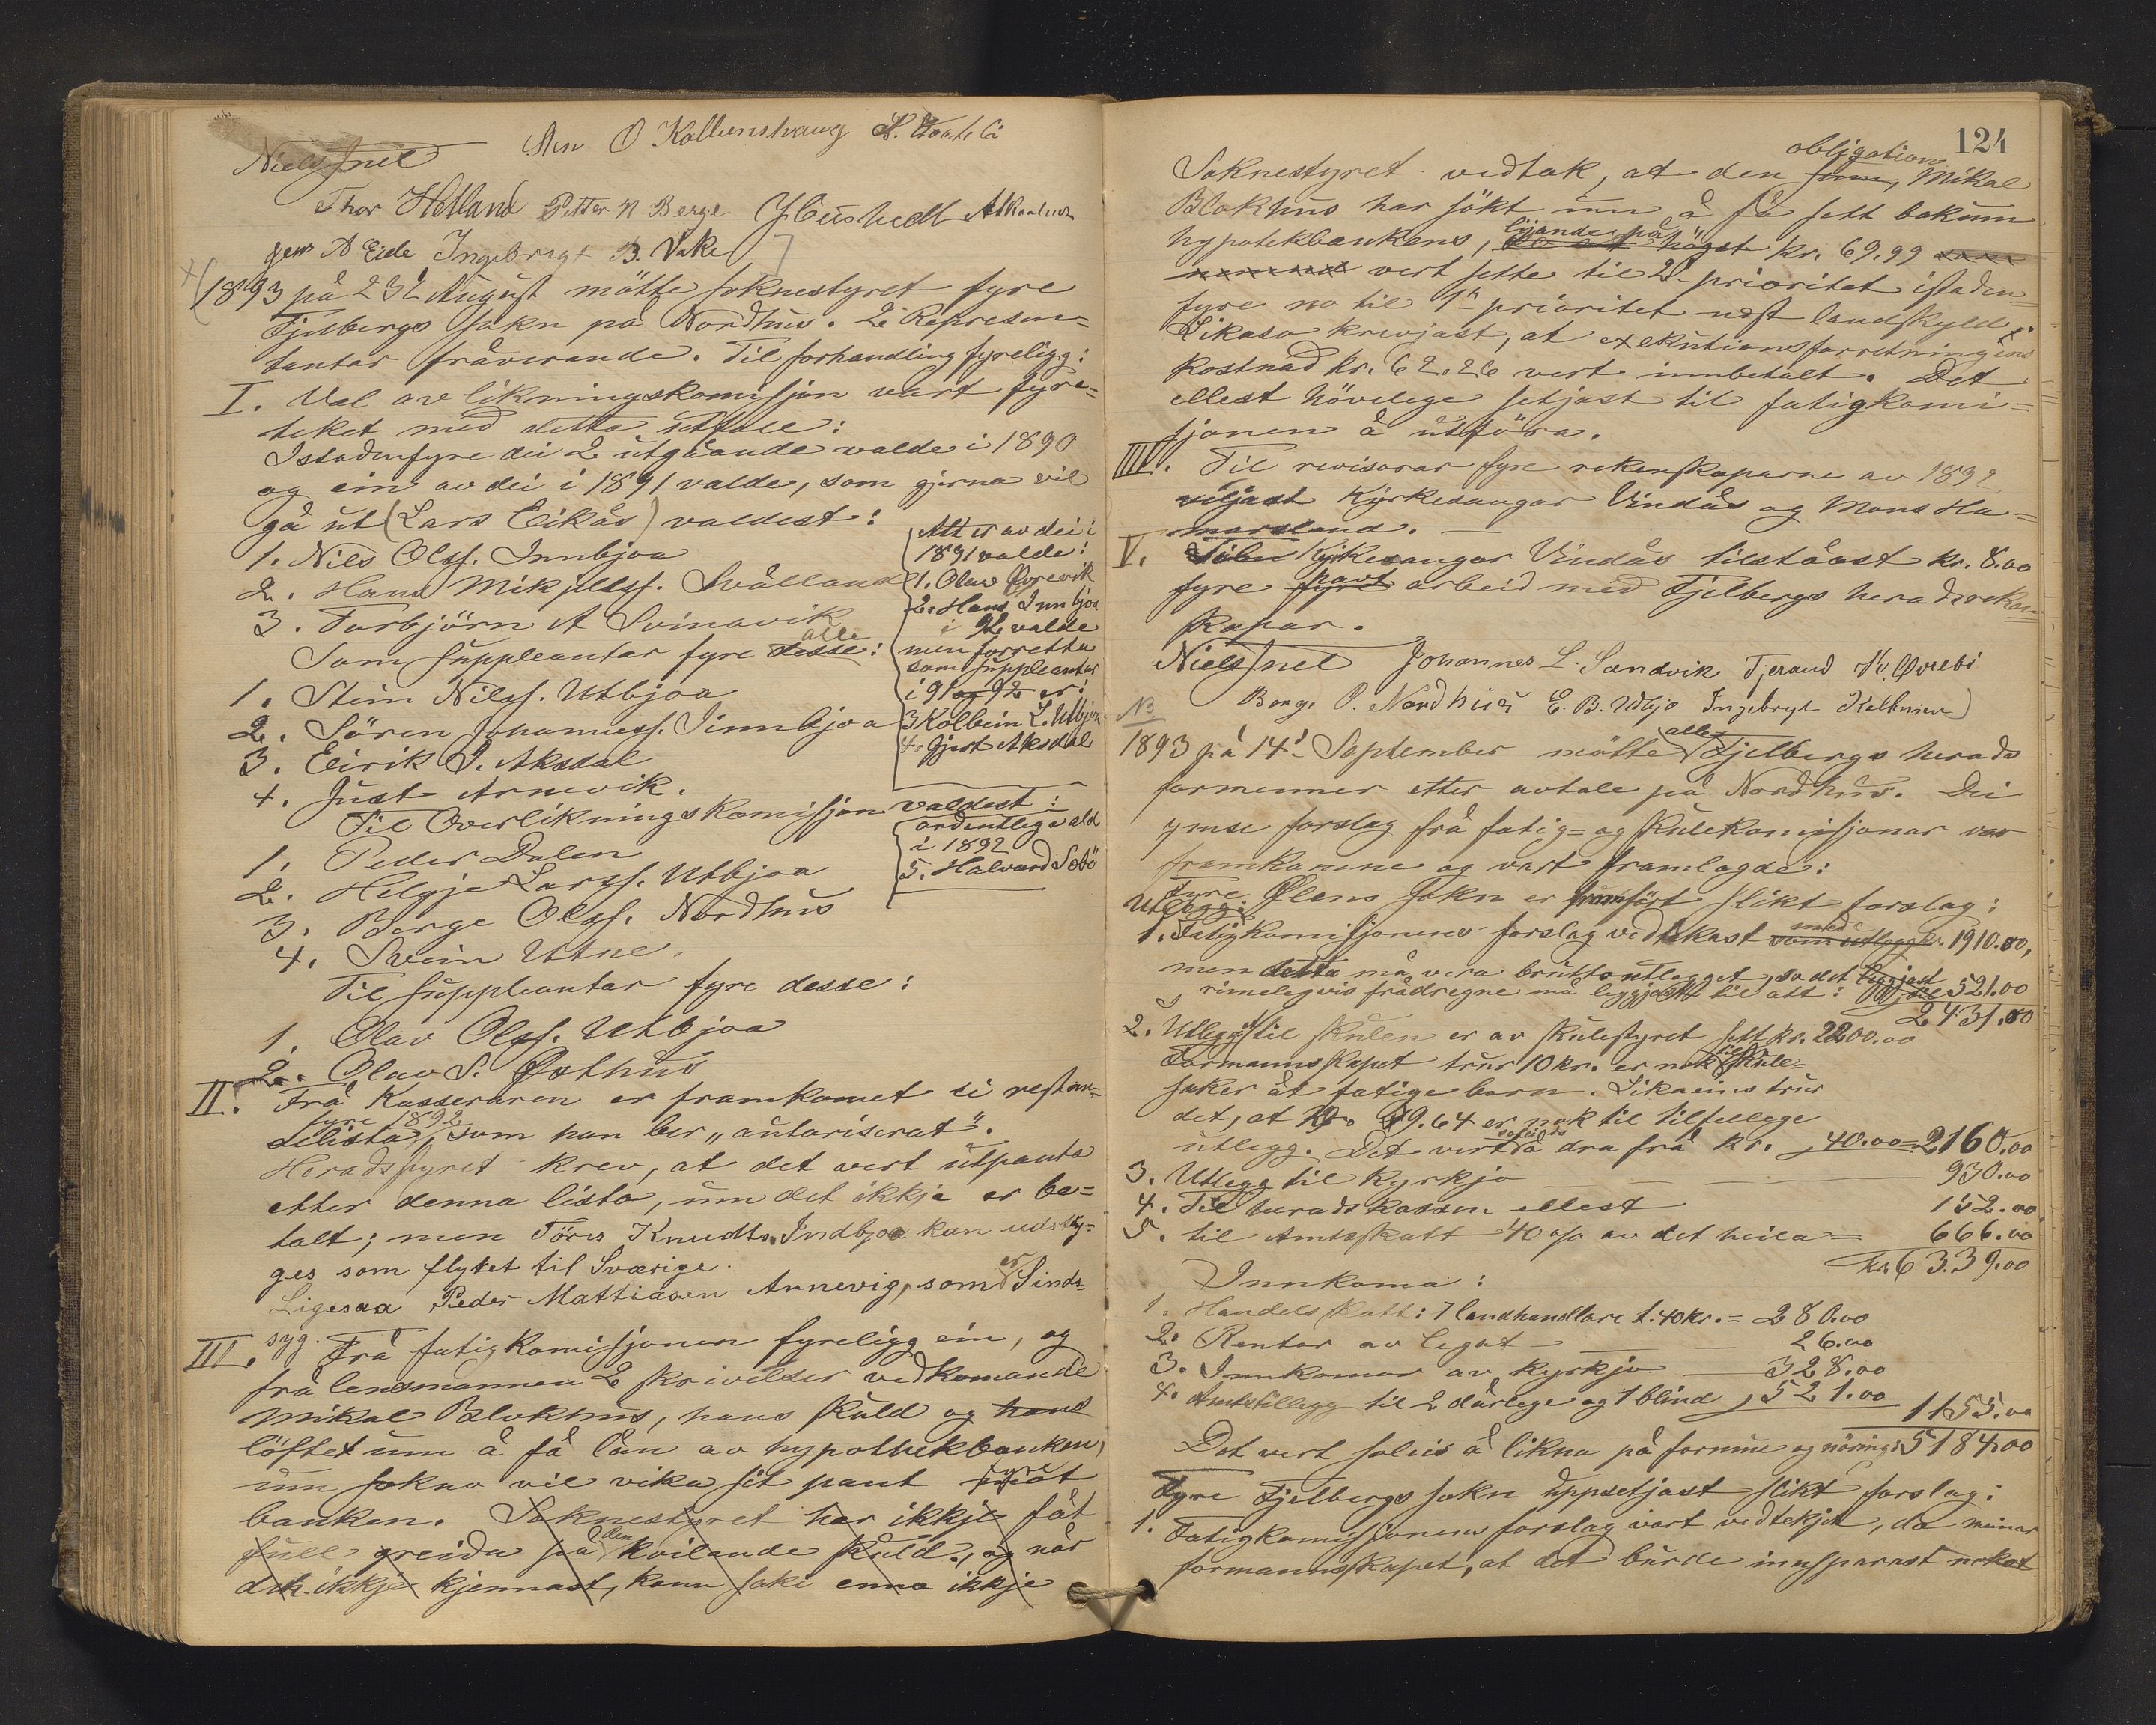 Niels Juel
O Kallevshaug
Thor Helland Petter N Berge
Jens A Eide Ingebrigt B. Vike
1893 på 23d August mötte soknestyret fyre
Fjelbergs sokn på Nordhus. 2 Represen=
tantar fråverande. Til forhandling fyreligg:
I. Val av likningskomisjon vart fyre=
teket med detta utfall:
Istadenfyre dei 2 utgåande valde i 1890
og ein av dei i 1891 valde, som gjerna vil
gå ut (Lars Eikås) valdest:
1. Nils Olsf. Innbjoa
2. Hans Mikjelsf. Svålland
3. Torbjörn A Svinavik
Som suppleantar fyre desse: alle
1. Stein Nilsf. Utbjoa
2. Sören Johannesf. Innbjoa
3. Eirik S. Aksdal
4. Just Arnevik.
Att er av dei i
1891 valde:
1. Olav Øvrevik
2. Hans Innbjoa
i 92 valde
men forretta
som suppleantar
i 91 og 92 er:
3 Kolbein L. Utbjoa
4. Gjert Aksdal
Til Overlikningskomisjon valdest:
1. Peder Dalen
2. Helgje Larsf. Utbjoa
3. Berge Olsf. Nordhus
4. Svein Utne.
ordentleg vald
i 1892
5. Halvard Sæbö
Til suppleantar fyre desse:
1. Olav Olsf. Utbjoa
2. Olav S. Østhus
II. Frå Kasseraren er framkomet ei restan=
selista, fyre 1892 som han ber „autoriserat".
Heradsstyret krev, at det vert utpanta
etter denna lista, um det ikkje er be=
talt; men Töres Knudts. Indbjoa kan udstry=
ges som flyttet til Sværige.
Ligesaa Peder Mattiasen Arnevig, som er Sinds=
syg.
III. Frå fatigkomisjonen fyreligg ein, og
frå lensmannen 2 skrivelser vedkomande
Mikal Blokhus, hans skuld og hans
löftet um å få lån av hypothekbanken,
um sokna vil vika sit pant fyre mot
banken. Soknestyret har ikkje fåt
full greida på den kvilande skuld, og når
det ikkje kjennast, kann saki enna ikkje
124
Soknestyret vedtak, at den obligation sum, Mikal
Blokhus har sökt um å få sett bakum
hypotekbankens, lydande på högst kr. 69.99
vert sette til 2. prioritet istaden=
fyre no til 1st prioritet næst landskyld.
Likaso krevjast, at exekutionsforretningens
kostnad kr. 62.26 vert innbetalt. Det
ellest hövelege setjast til fatigkomi=
sjonen å utföra.
IIII. Til revisorar fyre rekenskaparne av 1892
veljast Kyrkesangar Vindås og Mons Ha=
marsland.
V. Kyrkesangar Vindås tilståast kr. 8.00
fyre havt arbeid med Fjelbergs heradsreken=
skapar.
Niels Juel Johannes L. Sandvik Tjerand K. Øvrebö
Berge O. Nordhus E. B. Utbjo Ingebryt Kolbeinsen
NB
1893 på 14d September mötte alle Fjelbergs herads
formenner etter avtale på Nordhus. Dei
ymse forslag frå fatig= og skulekomisjonar var
framkomne og vart framlagde:
Fyre Ølens sokn er framfört slikt forslag:
Utlegg:
1. Fatigkomisjonens forslag vedtekast med som utlegg kr. 1910.00,
men detta må vera bruttoutlegget, so det leggjast
rimelegvis frådregne må leggjast til att: 521.00
2431.00
2. Utlegg til skulen er av skulestyret sett kr. 2200.00
Formannskapet trur 10 kr. er nok til skule=
saker åt fatige born. Likaeins trur
det, at 19.64 er nok til tilfellege
utlegg. Det vert soleids å dra frå kr. 40.00 = 2160.00
3. Utlegg til kyrkja 930.00
4. Til heradskassen ellest 152.00
5. til Amtsskatt 40 o/o av det heila = 666.00
kr. 6339.00
Innkoma:
1. Handelsskatt: 7 landhandlare t. 40 kr. = 280.00
2. Rentar av legat 26.00
3. Innkomor av kyrkja 328.00
4. Amtstillegg til 2 dårlege og 1 blind, 521.00
1155.00
Det vert soleis å likna på formue og næring: 5184.00
Fyre Fjelbergs sokn uppsetjast slikt forslag:
1. Fatigkomisjonens forslag vart vedtekje, da meinar
formannskapet, at det burde innsparast nokot